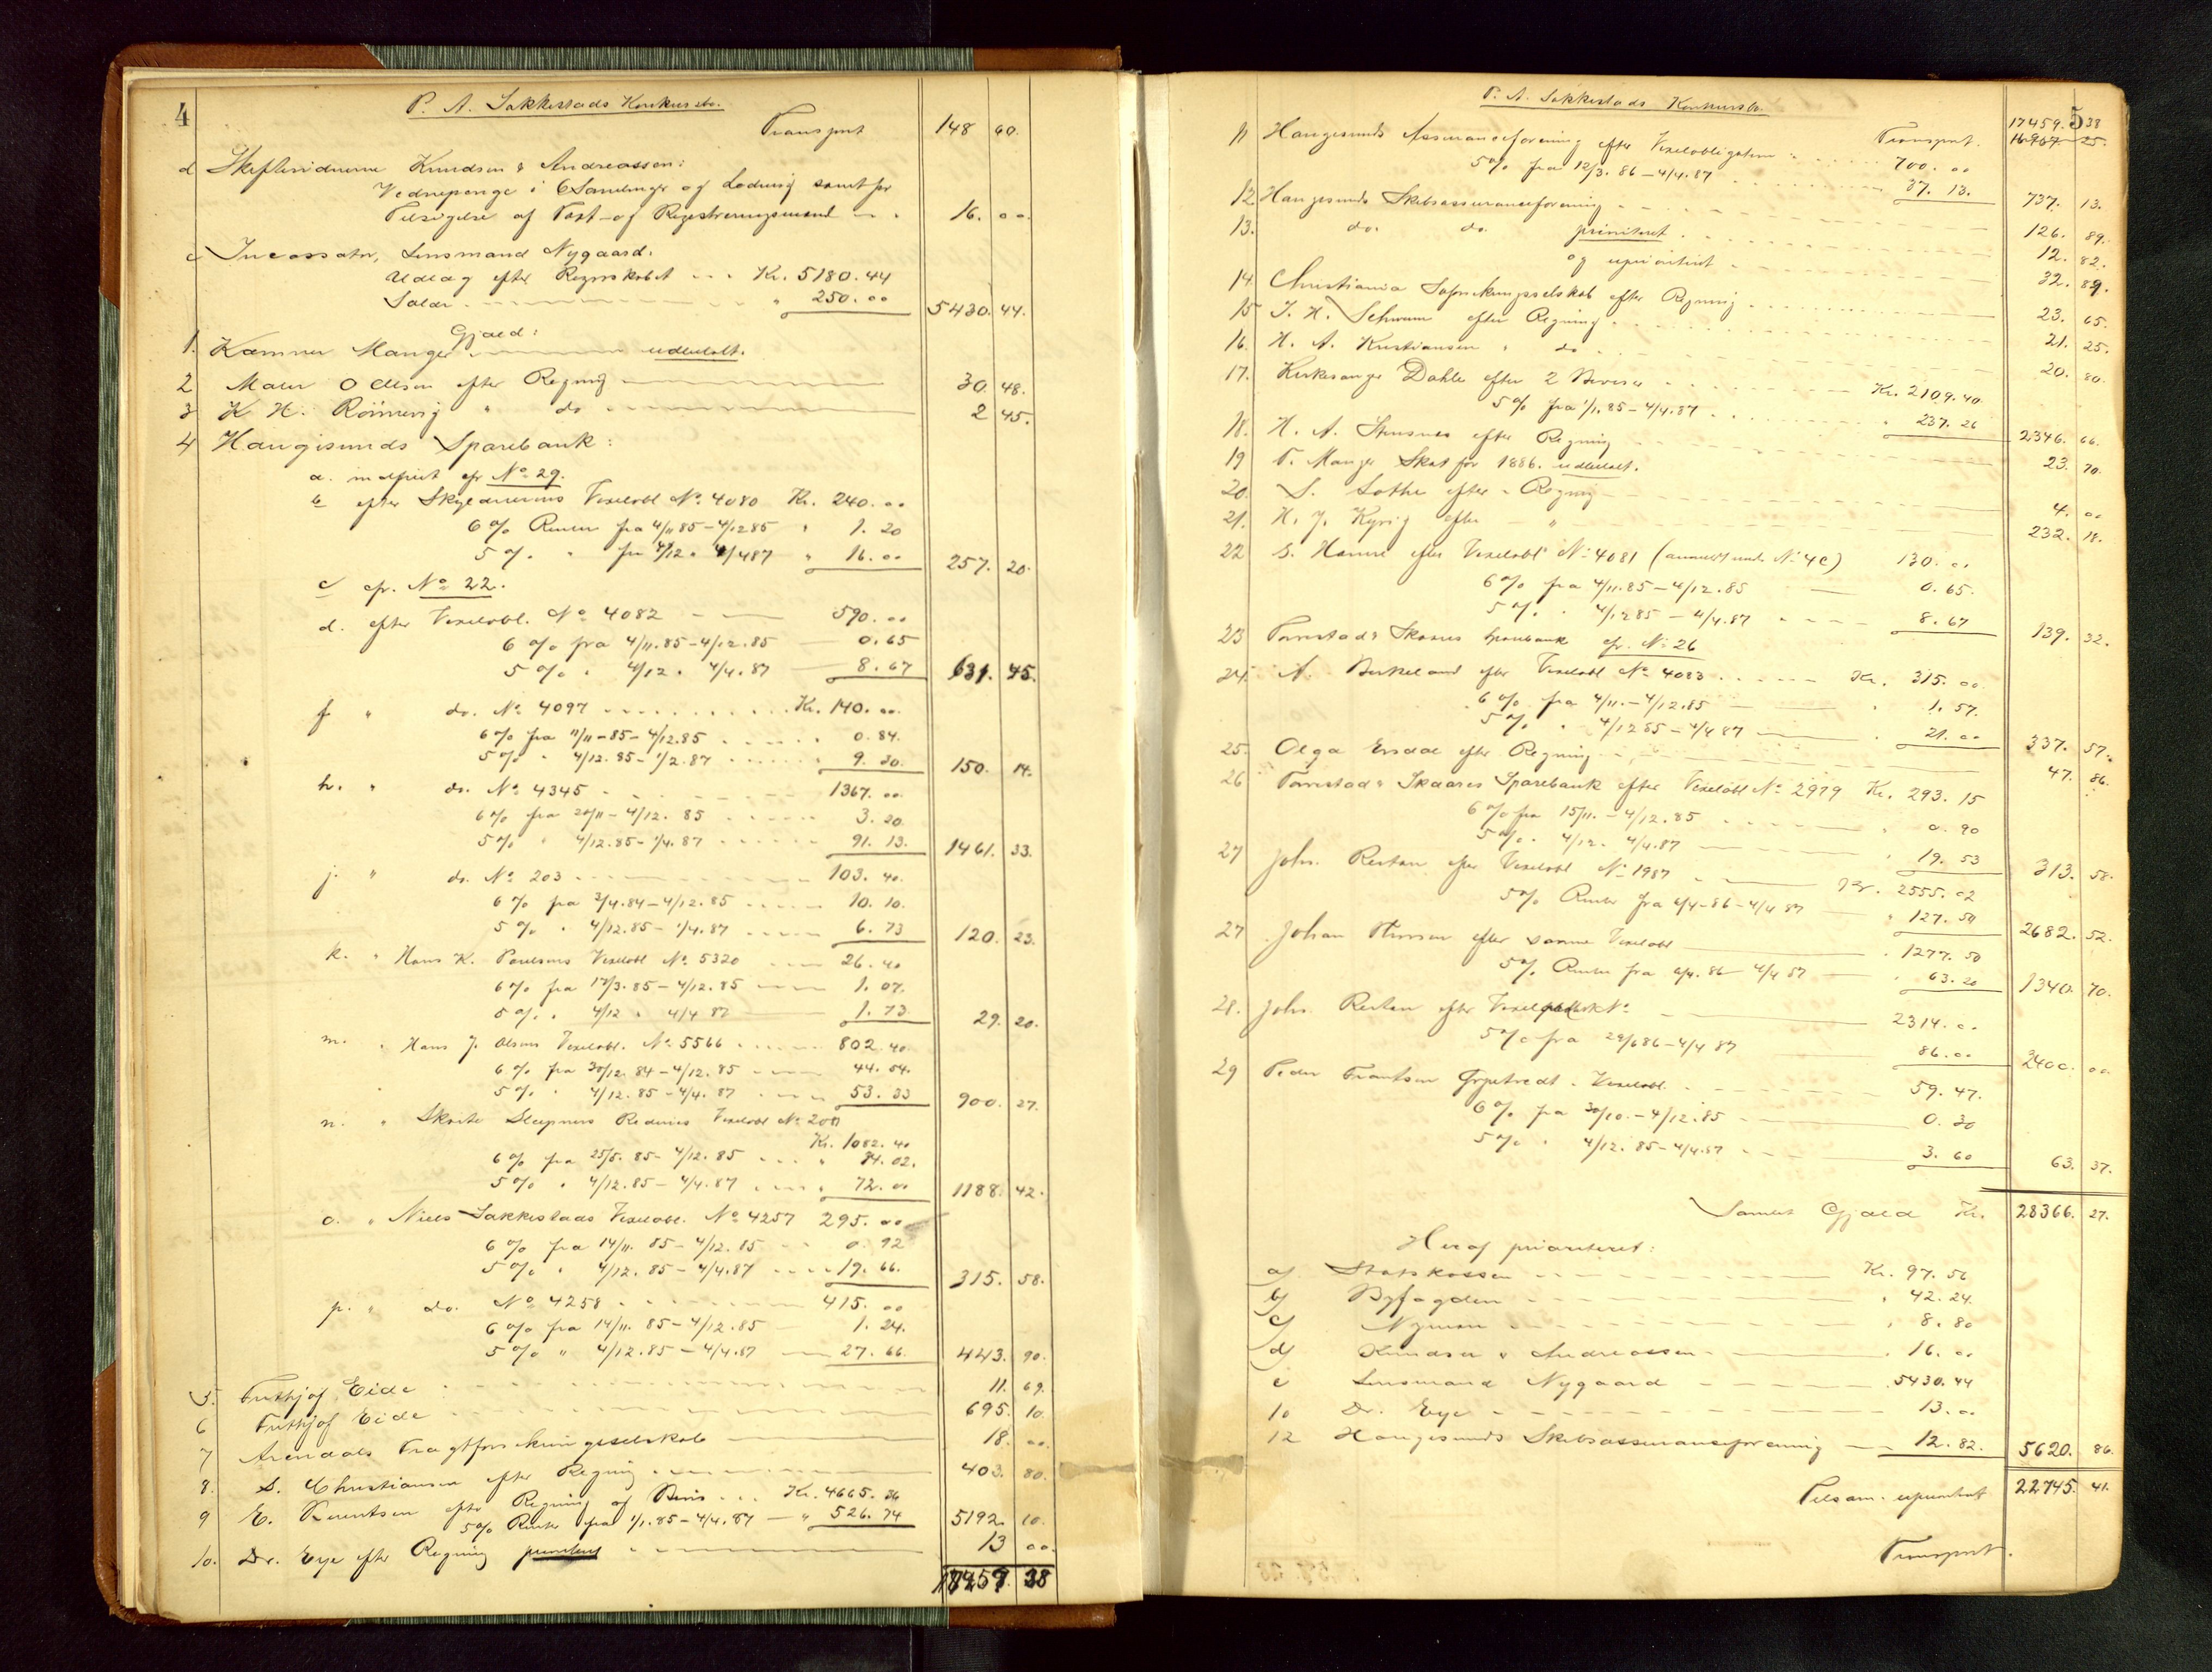 4
P. A. Sakkestads Konkursbo.
Transport 148 60.
d Skifteviduerne Knudsen & Andreassen:
Vidnepenge i 6 Samlinger og Lodning samt for
Tilsigelse af Taxt- og Registreringsmænd 16. 00
e Incassator, Lensmand Nygaard.
Udlæg efter Regnskabet Kr. 5180.44
Salær " 250.00 5430. 44.
Gjæld:
1. Kæmner Manger udbetalt.
2 Maler O Olsen efter Regning 30. 48.
3 K. H. Rönnevig " do 2 45.
4 Haugesunds Sparebank:
a. cfr No 29.
b efter Skyldnerens Vexelobl No. 4080 Kr. 240.00
6% Renter fra 4/11 85-4/12 85 " 1. 20
5%. " fra 4/12 " 4/4 87 " 16.00 257. 20.
c cfr. No 22.
d. efter Vexelobl. No. 4082 590.00
6% fra 4/11.85-4/12.85 0.65
5% " 4/12 " 4/4.87 8.67 631. 45.
f. " do. No 4097 Kr. 140.00
6% fra 11/11-85-4/12.85 0.84.
5% " 4/12.85-4/2.87 9.30. 150. 14.
h. " do. No 4345 1367.00
6% fra 20/11-4/12.85 3.20
5% " 4/12.85-4/4.87 91.13. 1461. 33.
j. " do. No 203 103.40.
6% fra 2/4.84-4/12.85 10.10.
5% " 4/12.85-4/4.87 6.73 120. 23.
k. " Hans K. Poulsens Vexelobl No. 5320 26.40
6% fra 17/3.85-4/12.85 1.07.
5% " 4/12 " 4/4 87 1.73 29. 20.
m. " Hans J. Olsens Vexelobl. No. 5566 802.40
6% fra 30/12.84-4/12.85 44.54.
5% " 4/12.85-4/4.87 53.33 900. 27.
n. " Skøite Sleipners Rederies Vexelobl No 200
Kr. 1082.40
6% fra 25/5.85-4/12.85 " 34.02.
5% " 4/12.85-4/4.87 " 72.00 1188. 42.
o. " Niels Sakkestads Vexelobl. No. 4257 295.00
6% fra 14/11.85-4/12.85 0.92
5% " 4/12.85-4/4.87 19.66. 315. 58.
p. " do. No 4258 415.00
6% fra 14/11.85-4/12.85 1.24.
5% " 4/12.85-4/4.87 27.66. 443. 90.
5. Frithjof Eide 11. 69.
6 Frithjof Eide 695. 10.
7 Arendals Fragtforsikringsselskab 18. 00.
8. S. Christiansen efter Regning 403. 80.
9 E. Berentsen efter Regning og Bevis Kr. 4665.36
5% Renter fra 1/1.85-4/4.87 " 526.74 5192. 10.
10. Dr. Eye efter Regning prioritert 13 00.
17459. 38
5
P. A. Sakkestads Konkursbo.
Transport. 17459. 38
16907 25.
11 Haugesunds Assuranceforening efter Vexelobligation 700.00
5% fra 12/3.86-4/4.87 37.13. 737. 13.
12. Haugesunds Skibsassuranceforening 126. 89.
13. do. do. prioritert 12. 82.
og uprioritert 32. 89.
14. Christiania Forsikringsselskab efter Regning 23. 65.
15 J. H. Schrum efter Regning 21. 25.
16. H. A. Kristiansen " do 20. 80.
17. Kirkesanger Dahle efter 2 Beviser Kr. 2109.40.
5% fra 1/1.85-4/4.87 237.26 2346. 66.
18. H. A. Stensnes efter Regning 23. 70.
19 T. Manger Skat for 1886. udbetalt.
20. S. Lothe efter Regning 4. 00
21. H. J. Kyvig efter " 232. 18.
22 S. Hamre efter Vexelobl No 4081 (anmeldt under No 4c) 130.00
6% fra 4/11.85-4/12.85 0.65.
5%. " 4/12 85-4/4.87 8.67 139. 32.
23 Torvestad & Skaares Sparebank cfr. No 26
24. A. Birkeland efter Vexelobl No 4083 Kr. 315.00
6% fra 4/11.-4/12.85 " 1.57.
5% " 4/12 85-4/4 87 " 21.00 337. 57.
25. Olga Ersdal efter Regning 47. 86.
26 Torvestad & Skaares Sparebank efter Vexelobl No 2979 Kr. 293.15
6% fra 15/11.-4/12.85 " 0.90
5%. 4/12. 4/4.87 " 19.53 313. 58.
27 Johs. Restan efter Vexelobl No 1987 Kr. 2555.02
5% Renter fra 4/4-86-4/4 87 " 127.50 2682. 52.
27 Johan Thorsen efter samme Vexelobl " 1277.50
5% Renter fra 4/4.86-4/4 87 " 63.20 1340. 70.
28. Johs. Restan efter No 2314.00
5% fra 29/6 86-4/4 87 86.00 2400. 00
29 Peder Frantsen Grjetvedt. Vexelobl. 59.47.
6% fra 30/10.-4/12.85 0.30
5% " 4/12.85-4/4.87 3.60 63. 37.
Samlet Gjæld Kr. 28366. 27.
Heraf prioriteret:
a) Statskassen Kr. 97.56
b) Byfogden " 42.24.
c) Nyman " 8.80
d) Knudsen & Andreassen " 16.00
e Lensmand Nygaard " 5430.44
10 Dr. Eye " 13.00
12 Haugesunds Skibsassuranceforening 12.82. 5620. 86.
Tilsam. uprioritert 22745. 41.
Transport.